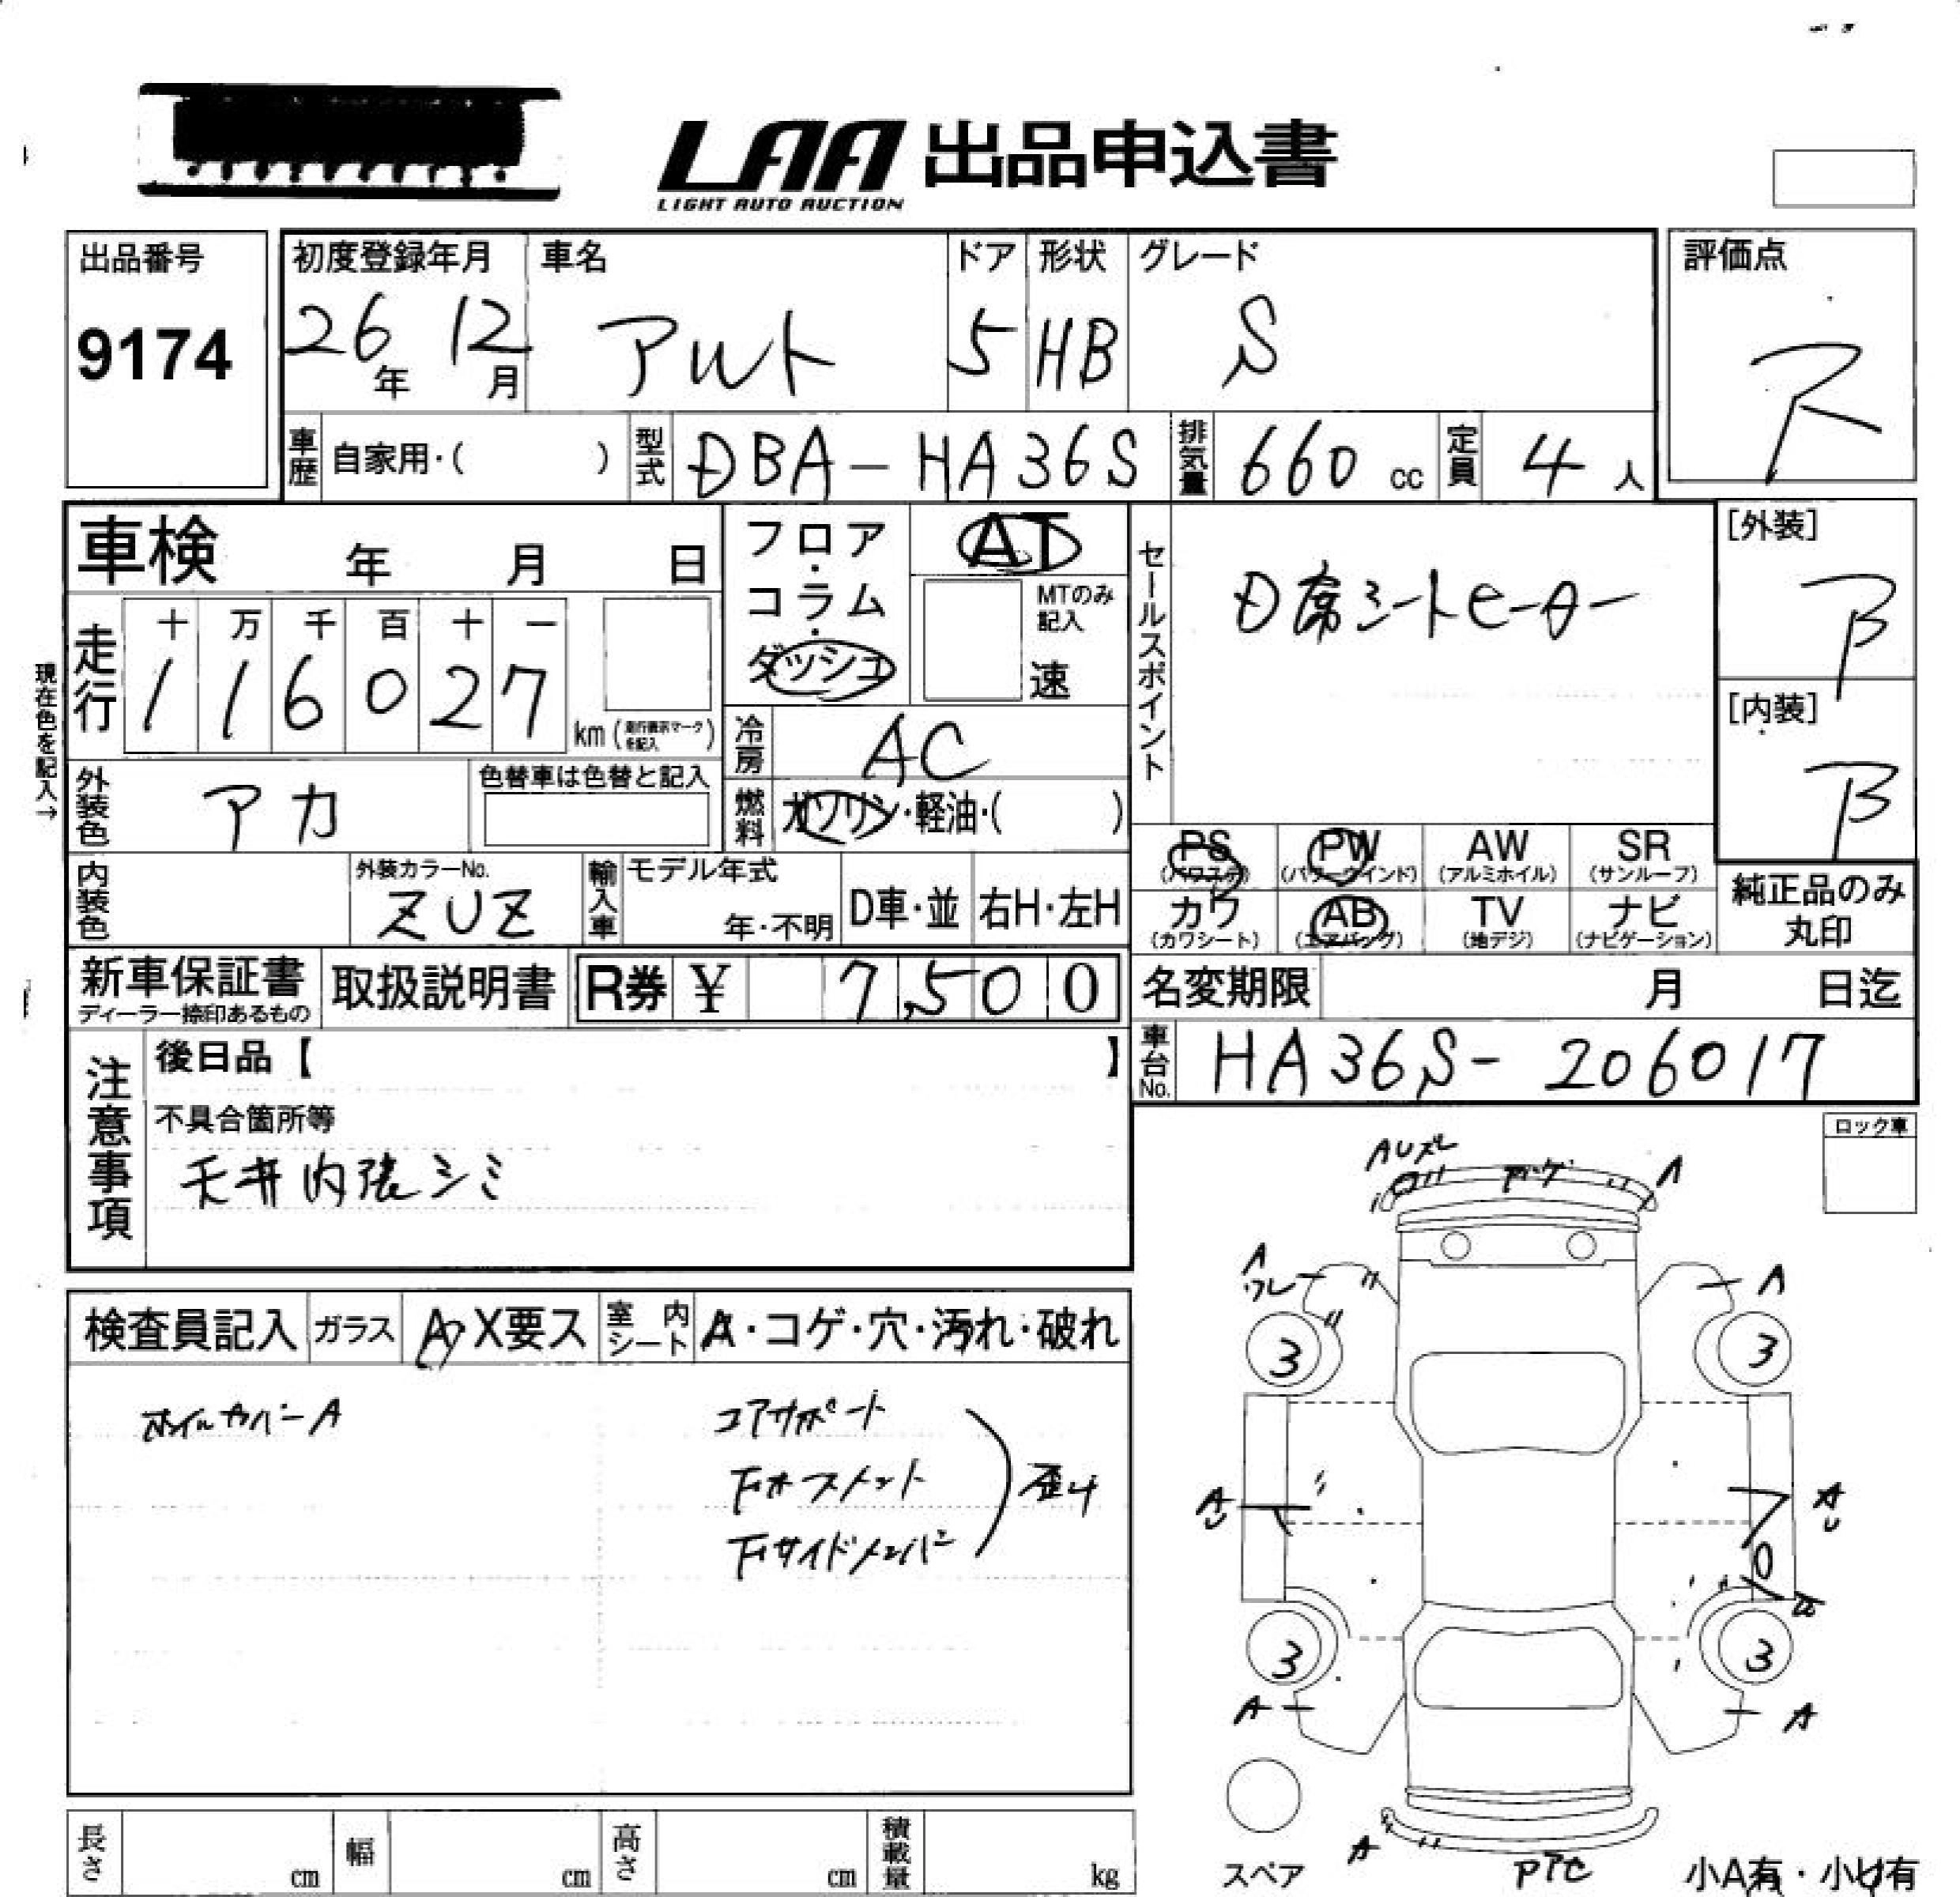 LAA 出品申込書
LIGHT AUTO AUCTION
出品番号
9174
初度登録年月
26年 12月
車名
アルト
ドア
5
形状
HB
グレード
S
評価点
R
車歴 自家用・( )
型式 DBA-HA36S
排気量 660 cc
定員 4 人
車検 年 月 日
フロア・コラム・ダッシュ
AT
MTのみ記入
速
セールスポイント
D席シートヒーター
[外装]
B
[内装]
B
走行
十 万 千 百 十 一
1 1 6 0 2 7
km(走行表示マークを記入)
現在色を記入→
冷房 AC
外装色 アカ
色替車は色替と記入
燃料 ガソリン・軽油・( )
PS (パワステ)
PW (パワーウインド)
AW (アルミホイル)
SR (サンルーフ)
カワ (カワシート)
AB (エアバッグ)
TV (地デジ)
ナビ (ナビゲーション)
純正品のみ
丸印
内装色
外装カラーNo.
ZUZ
輸入車
モデル年式
年・不明
D車・並
右H・左H
新車保証書
ディーラー捺印あるもの
取扱説明書
R券 ¥ 7,500
名変期限 月 日迄
車台No. HA36S-206017
注意事項
後日品【 】
不具合箇所等
天井内張シミ
ロック車
検査員記入
ガラス
A X要ス
室内シート
A・コゲ・穴・汚れ・破れ
ホイルカバーA
コアサポート
下ホースメント
下サイドメンバー
歪み
A
A
ワレ
A
3
3
A
A
3
3
A
A
A
スペア
小A有・小U有
長さ cm
幅 cm
高さ cm
積載量 kg